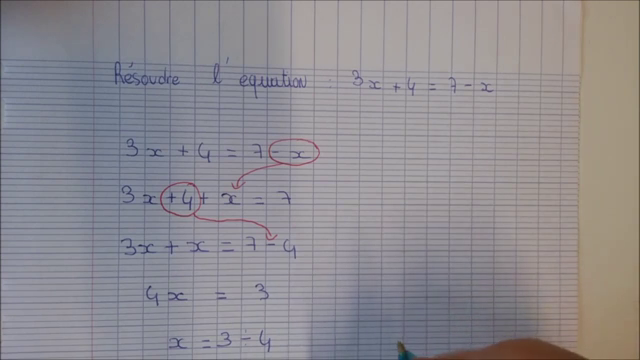 Résoudre l'équation : 3x + 4 = 7 - x
3x + 4 = 7 - x
3x + 4 + x = 7
3x + x = 7 - 4
4x = 3
x = 3 ÷ 4